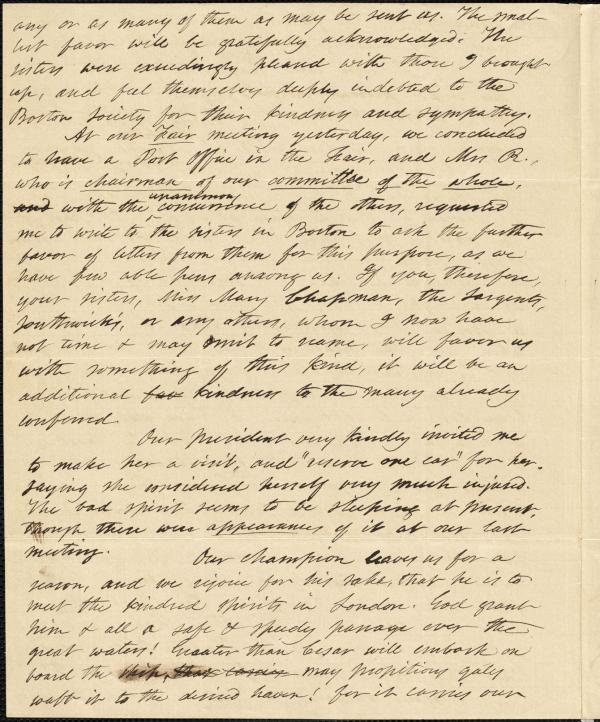 any or as many of them as may be sent us. The smal-
lest favor will be gratefully acknowledged. The
sisters were exceedingly pleased with those I brought
up, and feel themselves deeply indebted to the
Boston Society for their kindness and sympathy.
At our Fair meeting yesterday, we concluded
to have a Post Office in the Fair, and Mrs R.,
who is chairman of our committee of the whole,
and with the unanimous concurrence of the others, requested
me to write to the sisters in Boston to ask the further
favor of letters from them for this purpose, as we
have few able pens among us. If you, therefore,
your sisters, Miss Mary Chapman, the Sargents,
Southwick's, or any others, whom I now have
not time & may omit to name, will favor us
with something of this kind, it will be an
additional fav kindness to the many already
conferred.
Our president very kindly invited me
to make her a visit, and "reserve one ear" for her,
saying she considered herself very much injured.
The bad spirit seems to be sleeping at present,
though there were appearances of it at our last
meeting.
Our champion leaves us for a
season, and we rejoice for his sake, that he is to
meet the kindred spirits in London. God grant
him & all a safe & speedy passage over the
great waters! Greater than Cesar will embark on
board the ship, that carries may propitious gales
waft it to the desired haven! for it carries our